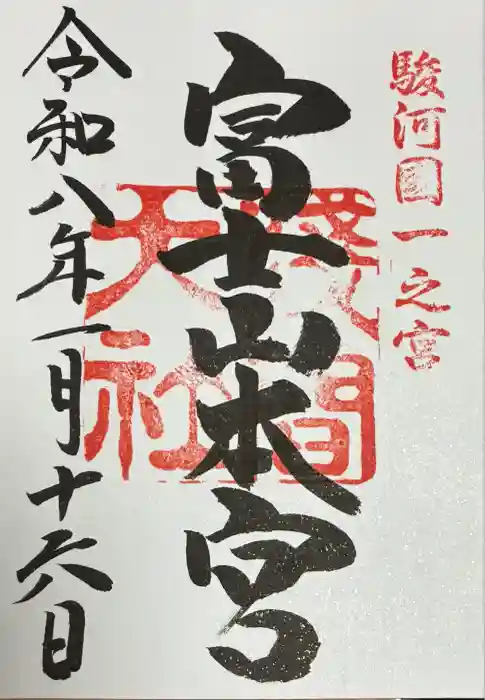 駿河國一之宮
富士山本宮
淺間
大社
令和八年一月十六日